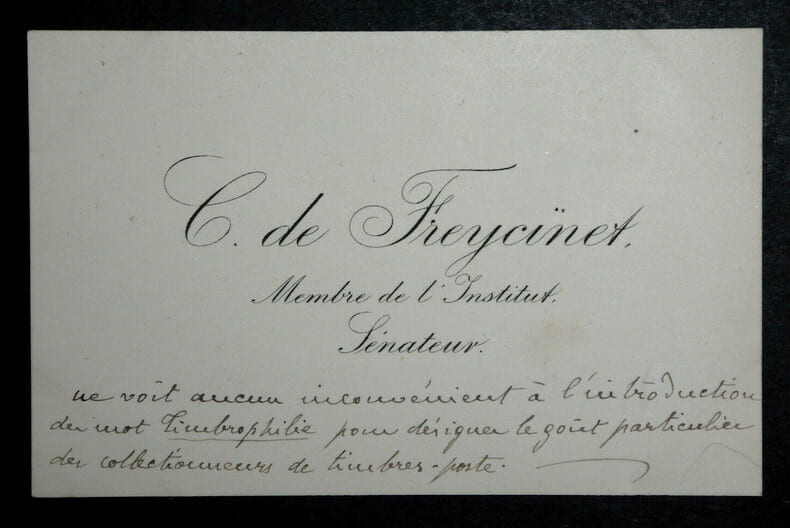 C. de Freycïnet.
Membre de l'Institut.
Sénateur.
ne voit aucun inconvénient à l'introduction
du mot Timbrophilie pour désigner le goût particulier
des collectionneurs de timbres-poste.